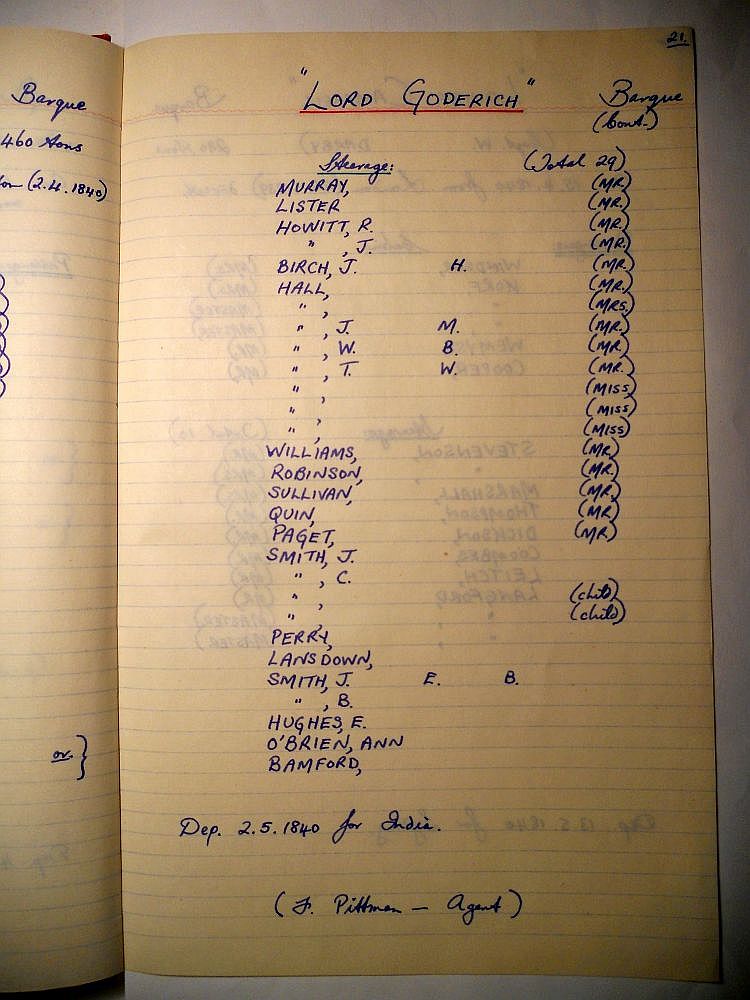 Barque
460 Tons
(2.4.1840)
or }
21.
"LORD GODERICH" Barque
(Cont.)
Steerage: (Total 29)
MURRAY, (MR.)
LISTER (MR.)
HOWITT, R. (MR.)
" , J. (MR.)
BIRCH, J. H. (MR.)
HALL, (MR.)
" , (MRS.)
" , J. M. (MR.)
" , W. B. (MR.)
" , T. W. (MR.)
" , (MISS)
" , (MISS)
" , (MISS)
WILLIAMS, (MR.)
ROBINSON, (MR.)
SULLIVAN, (MR.)
QUIN, (MR.)
PAGET, (MR.)
SMITH, J.
" , C.
" , (child)
" , (child)
PERRY,
LANSDOWN,
SMITH, J. E. B.
" , B.
HUGHES, E.
O'BRIEN, ANN
BAMFORD,
Dep. 2.5.1840 for India.
(F. Pittman — Agent)